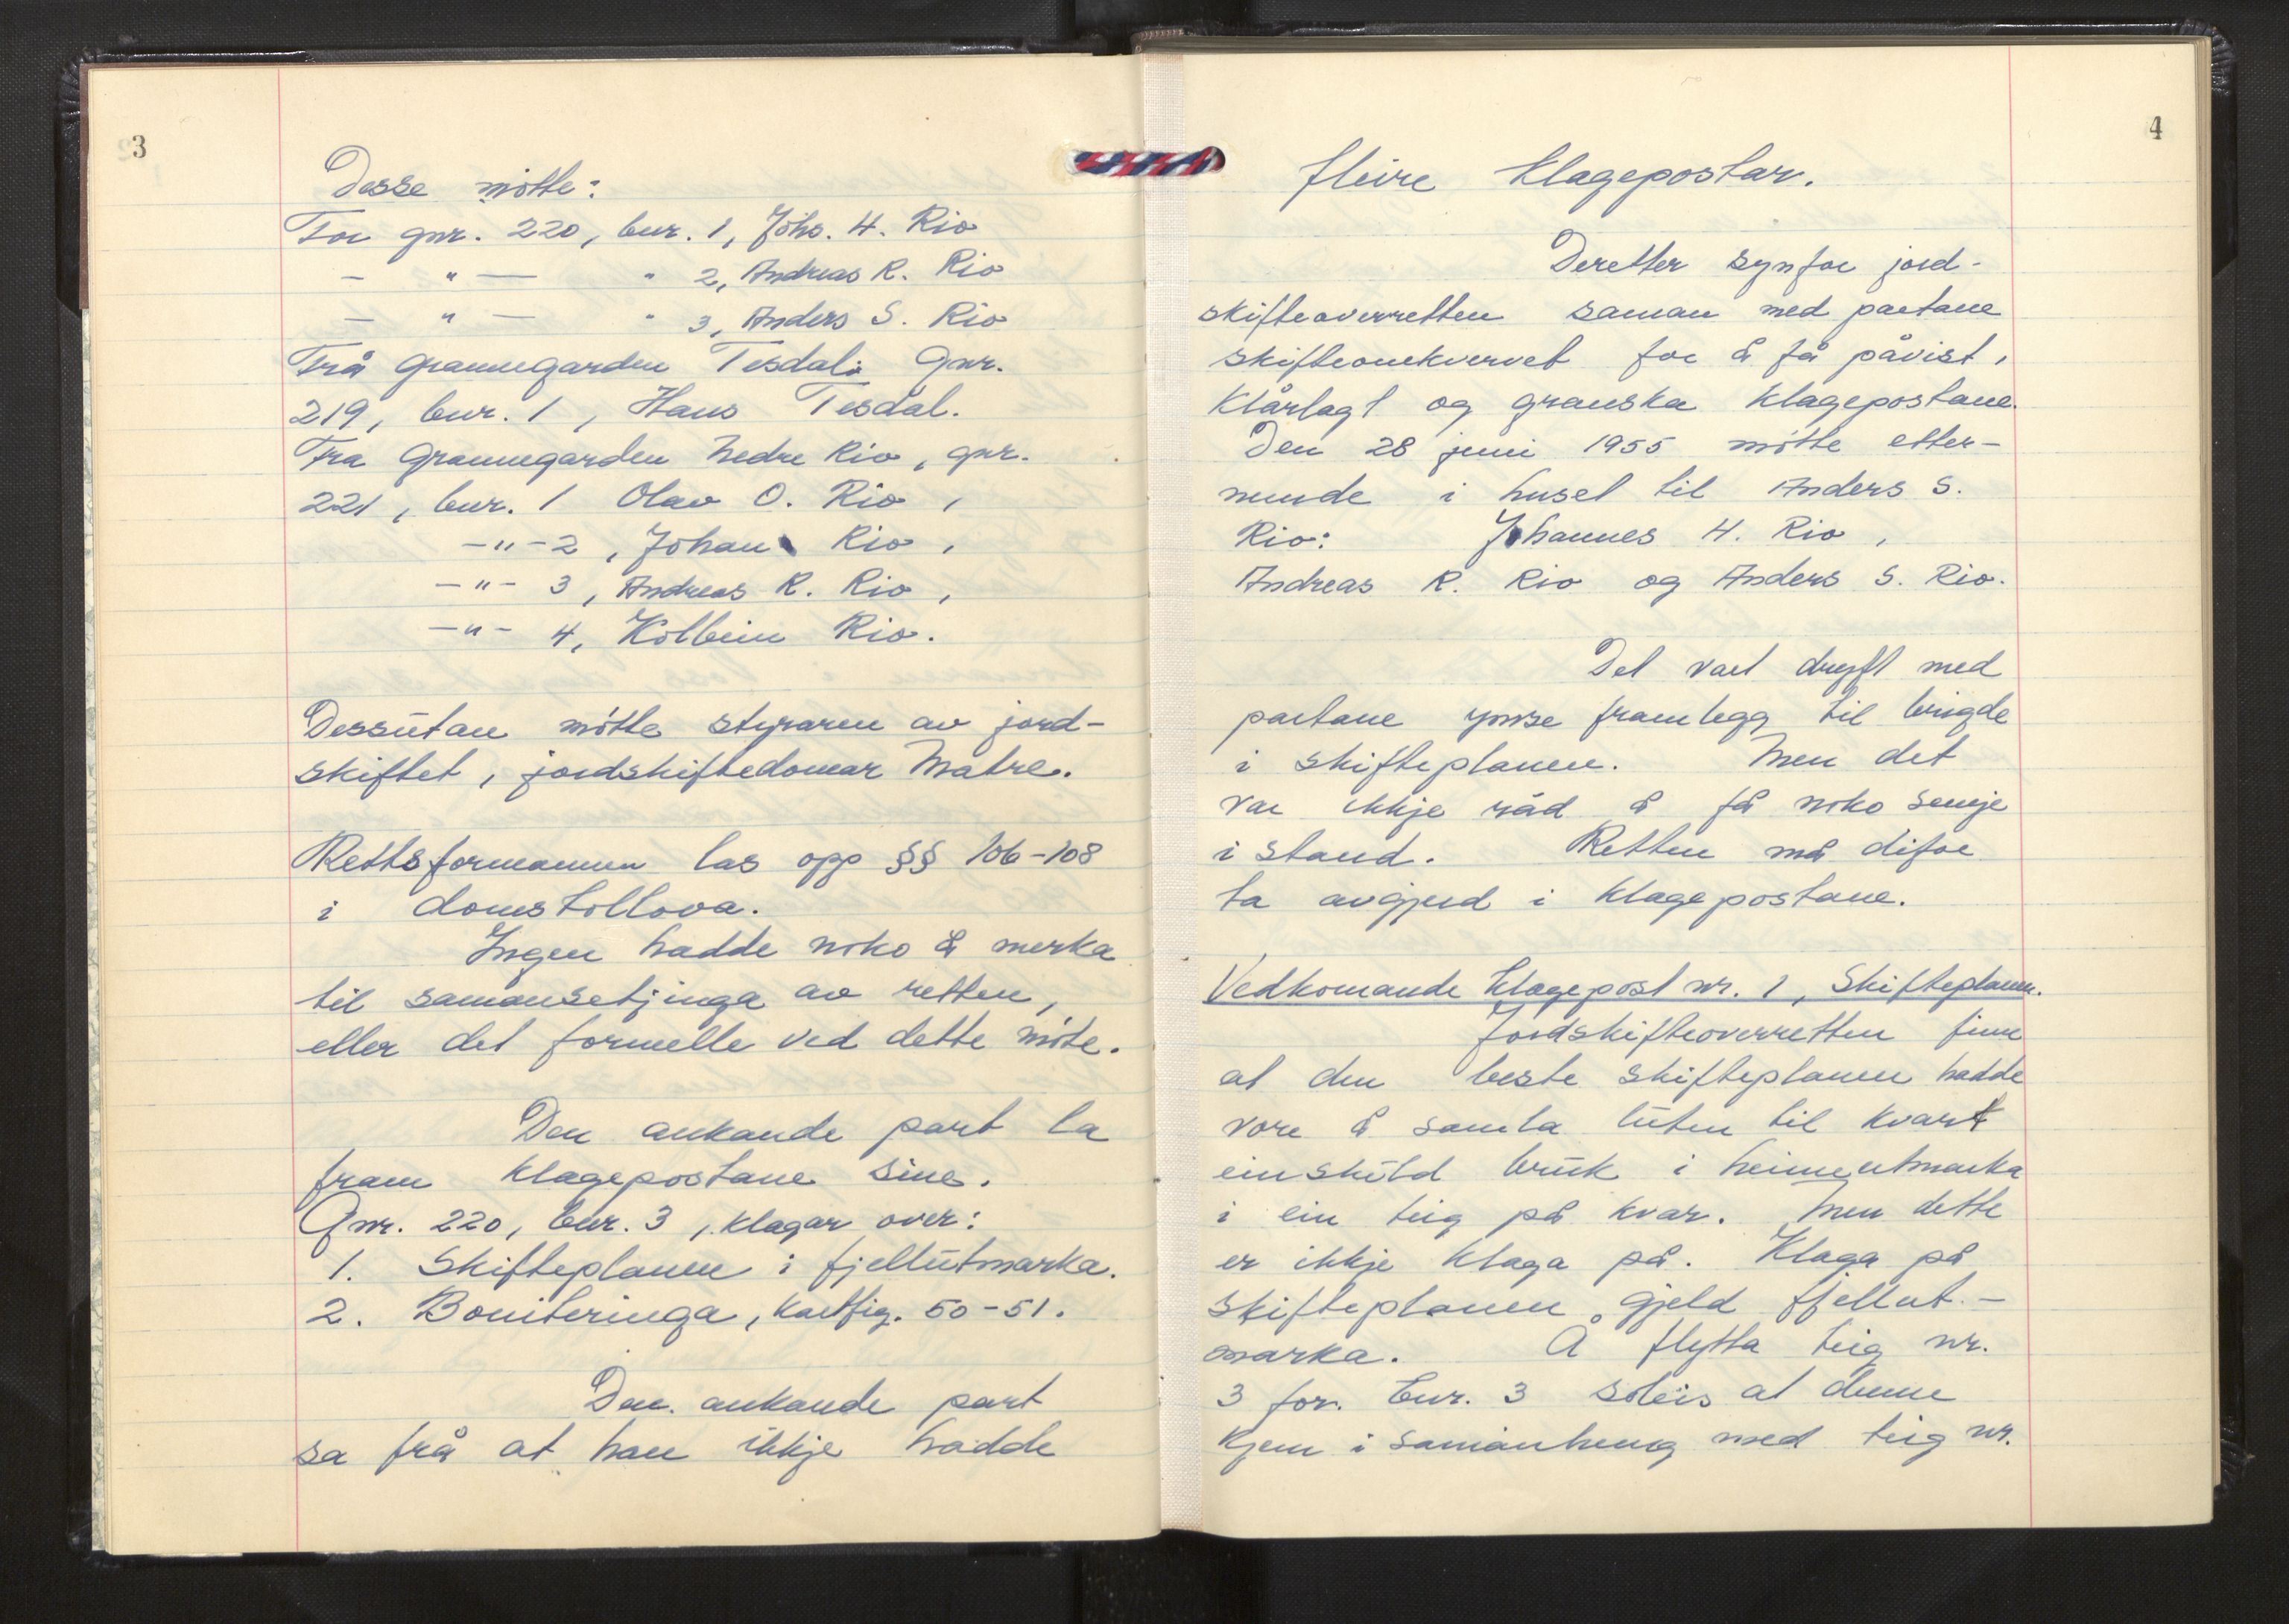 3
Desse møtte:
For gnr. 220, bnr. 1, Johs. H. Rio
— " — " 2, Andreas R. Rio
— " — " 3, Anders S. Rio
Frå grannegarden Tesdal: Gnr.
219, bnr. 1, Hans Tesdal.
Fra grannegarden Nedre Rio, gnr.
221, bnr. 1 Olav O. Rio,
-"- 2, Johan Rio,
-"- 3, Andreas R. Rio,
-"- 4, Kolbein Rio.
Dessutan møtte styraren av jord-
skiftet, jordskiftedomar Matre.
Rettsformannen las opp §§ 106-108
i domstollova.
Ingen hadde noko å merka
til samansetjinga av retten,
eller det formelle ved dette møte.
Den ankande part la
fram klagepostane sine.
Gnr. 220, bnr. 3, klagar over:
1. Skifteplanen i fjellutmarka.
2. Boniteringa, kartfig. 50-51.
Den ankande part
sa frå at han ikkje hadde
4
fleire klagepostar.
Deretter synfor jord-
skifteoverretten saman med partane
skifteomkvervet for å få påvist,
klårlagt og granska klagepostane.
Den 28 juni 1955 møtte etter-
nemnde i huset til Anders S.
Rio: Johannes H. Rio,
Andreas R. Rio og Anders S. Rio.
Det vart drøft med
partane ymse framlegg til brigde
i skifteplanen. Men det
var ikkje råd å få noko semje
i stand. Retten må difor
ta avgjerd i klagepostane.
Vedkomande klagepost nr. 1, Skifteplanen.
Jordskifteoverretten finn
at den beste skifteplanen hadde
vore å samla luten til kvart
einskild bruk i heimeutmarka
i ein teig på kvar. Men dette
er ikkje klaga på. Klaga på
skifteplanen gjeld fjellut-
marka. Å flytta teig nr.
3 for bnr. 3 soleis at denne
kjem i samanheng med teig nr.